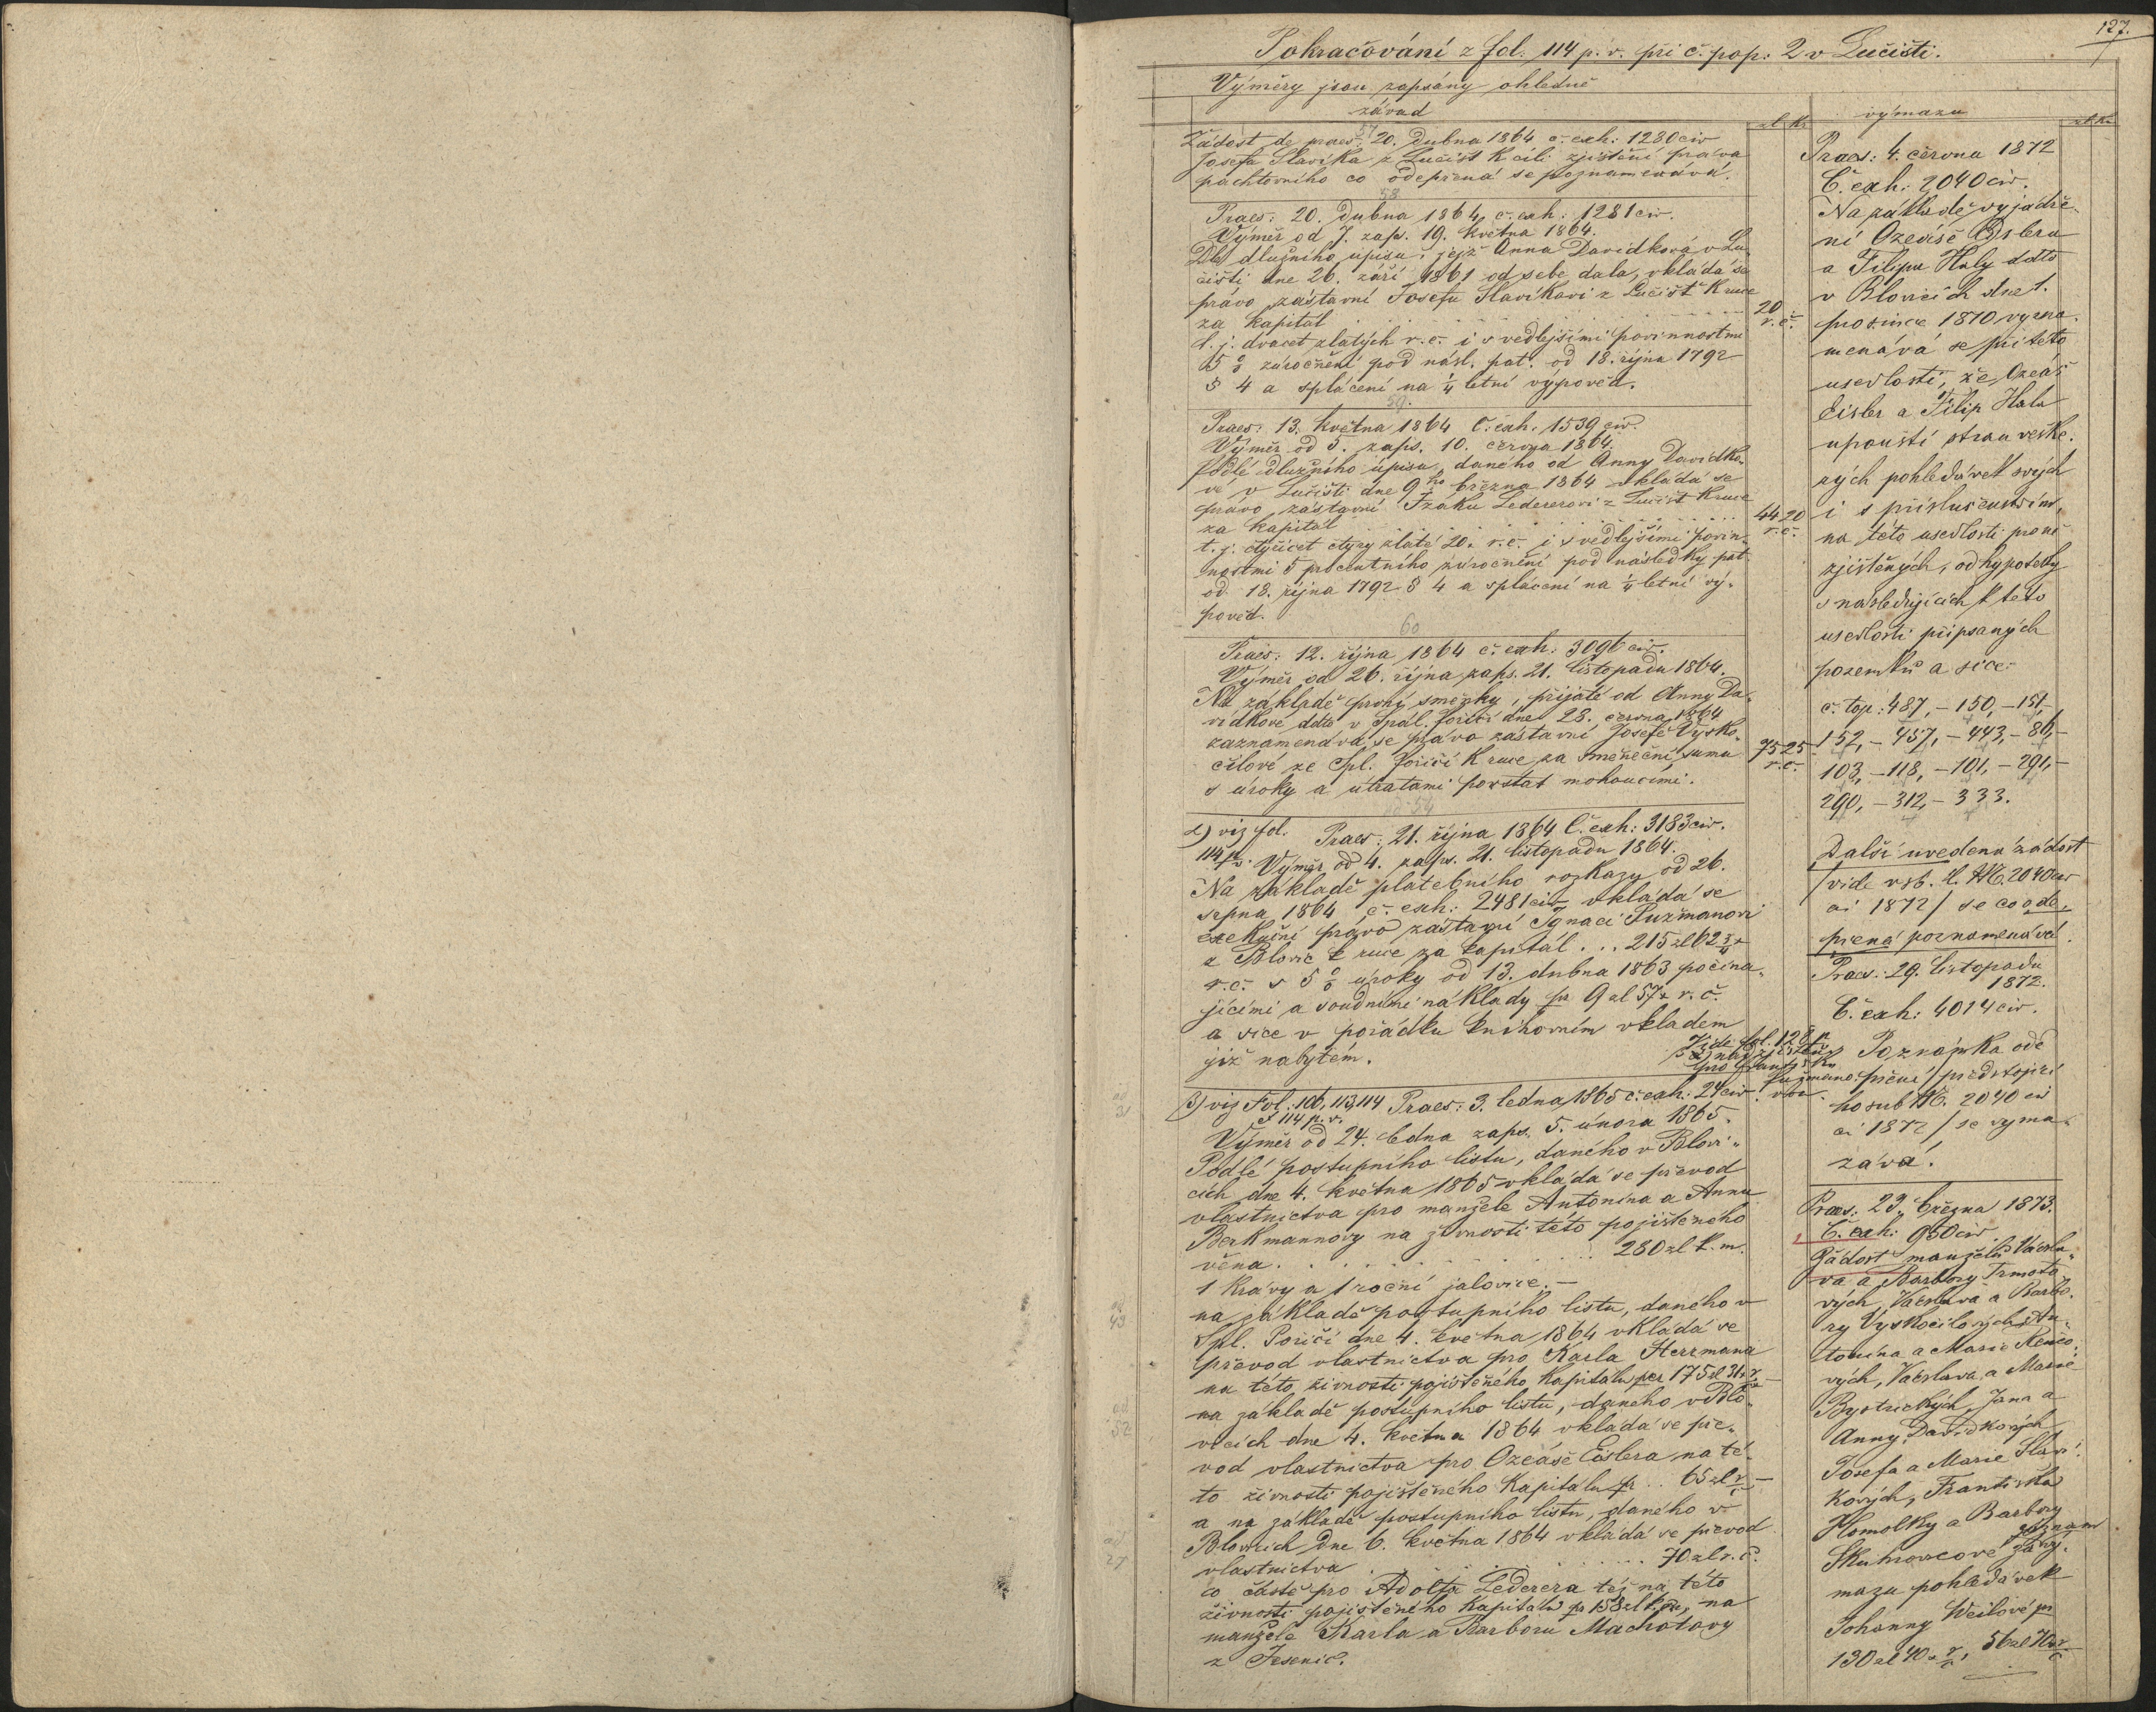 127.
Pokračování z fol. 114 p. v. při č. pop: 2 v Lučišti.
Výměry jsou zapsány ohledně
závad
zl. kr.
57
Žádost de praes: 20. dubna 1864 č. exh: 1280 civ
Josefa Slavíka z Lučišt k cíli zjištění práva
pachtovního co odepřená se poznamenává.
58
Praes: 20. dubna 1864 č. exh: 1281 civ.
Výměr od 7. zaps. 19. května 1864.
Dle dlužního úpisu, jejž Anna Davídková v Lu-
čišti dne 26. září 1861 od sebe dala, vkládá se
právo zástavní Josefu Slavíkovi z Lučišt k ruce
za kapitál . . . . . . . . . . 20
r. č.
t. j. dvacet zlatých r. č. i s vedlejšími povinnostmi
5 % zúročnění pod násl. pat. od 18. října 1792
§ 4 a splácení na ¼ letní výpověd.
59.
Praes: 13. května 1864 č. exh. 1539 civ.
Výměr od 5. zaps. 10. června 1864.
Podlé dlužního úpisu, daného od Anny Davídko-
vé v Lučišti dne 9ho března 1864 vkládá se
právo zástavní Izáku Ledererovi z Lučišt k ruce
za kapitál . . . . . . . . . . 44 20
r. č.
t. j. čtyřicet čtyry zlaté 20. r. č. i s vedlejšími povin-
nostmi 5 procentního zúročnění pod následky pat
od 18. října 1792 § 4 a splácení na ¼ letní vý-
pověd.
60
Praes: 12. října 1864 č. exh: 3096 civ.
Výměr od 26. října zaps. 21. listopadu 1864.
Na základě první směnky, přijaté od Anny Da-
vídkové ddto v Spál. Poříčí dne 28. června 1864
zaznamenává se právo zástavní Josefě Vysko-
čilové ze Spl. Poříčí k ruce za směneční sumu 75 25
r. č.
s úroky a útratami povstat mohoucími.
2) viz fol.
114 p. v.
Praes: 21. října 1864 Č. exh: 3183 civ.
Výměr od 4. zaps. 21. listopadu 1864.
Na základě platebního rozkazu od 26.
srpna 1864 č. exh: 2481 civ vkládá se
exekuční právo zástavní Ignaci Fuxmanovi
z Blovic k ruce za kapitál . . . 215 zl 62
r. č. s 5 % úroky od 13. dubna 1863 počína-
jícími a soudními náklady pr 9 zl 57 x r. č.
a sice v pořádku knihovním vkladem
již nabytém.
3) viz Fol. 106, 113, 114
i 114 p. v.
Praes: 3. ledna 1865 č. exh: 24 civ.
Výměr od 24. ledna zaps. 5. února 1865.
Podlé postupního listu, daného v Blovi-
cích dne 4. května 1865 vkládá se převod
vlastnictva pro manžele Antonína a Annu
Berkmannovy na živnosti této pojištěného
věna . . . . . . . . . . 280 zl k. m.
1 krávy a 1 roční jalovice. —
ad
43
na základě postupního listu, daného v
Spl. Poříčí dne 4. května 1864 vkládá se
převod vlastnictva pro Karla Herrmana
na této živnosti pojištěného kapitálu per 175 zl 31
ad
52
na základě postupního listu, daného v Blo-
vicích dne 4. května 1864 vkládá se pře-
vod vlastnictva pro Ozeáše Eislera na té-
to živnosti pojištěného kapitálu pr . . 65 zl
ad
27
a na základě postupního listu, daného v
Blovicích dne 6. května 1864 vkládá se převod
vlastnictva . . . . . . . . . 70 zl r. č.
co částě pro Adolfa Lederera též na této
živnosti pojištěného kapitálu pr 158 zl k. m., na
manžele Karla a Barboru Machotovy
z Jesenic.
výmazu
zl. kr.
Praes: 4. června 1872
Č. exh: 2040 civ.
Na základě vyjádře-
ní Ozeáše Eislera
a Filipa Haly ddto
v Blovicích dne 1.
prosince 1870 vyzna-
menává se při této
usedlosti, že Ozeáš
Eisler a Filip Hala
upouští stran veške-
rých pohledávek svých
i s příslušenstvím,
na této usedlosti pro ně
zjištěných, od hypoteky
s následujících k této
usedlosti připsaných
pozemků a sice:
č. top: 487, – 150, – 151,
152, – 457, – 443, – 86, –
103, – 118, – 101, – 291, –
290, – 312, – 333.
Další uvedená žádost
/vide vrb. č. 2040 civ
ai 1872/ se co ode-
přená poznamenává.
Praes: 29. listopadu
1872.
Č. exh: 4014 civ.
Poznámka ode
přění /předstojící
ho sub 2040 civ
ai 1872/ se vyma-
zává.
Praes: 29. března 1873.
Č. exh: 950 civ.
Žádost manželů Václa-
va a Barbory Trmoto-
vých, Václava a Barbo-
ry Vyskočilových, An-
tonína a Marie Renčo-
vých, Václava a Marie
Bystrických, Jana a
Anny Davídkových
Josefa a Marie Slaví-
kových, Františka
Homolky a Barbory
Skuhrovcové za vý-
záznam
mazu pohledávek
Johanny Weilové pr
130 zl 40 x, 56 zl 70